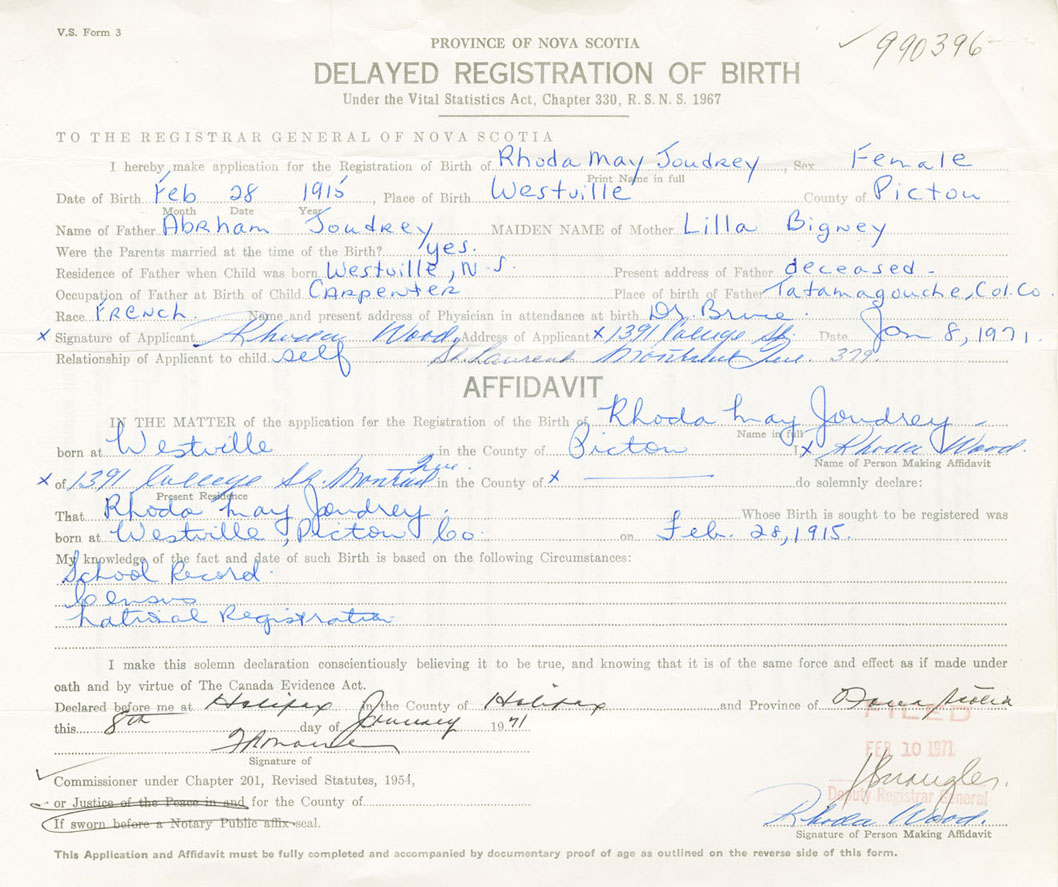 V.S. Form 3
990396
PROVINCE OF NOVA SCOTIA
DELAYED REGISTRATION OF BIRTH
Under the Vital Statistics Act, Chapter 330, R. S. N. S. 1967
TO THE REGISTRAR GENERAL OF NOVA SCOTIA
I hereby make application for the Registration of Birth of Rhoda May Joudrey, Sex Female
Print Name in full
Date of Birth Feb 28 1915, Place of Birth Westville County of Pictou
Month Date Year
Name of Father Abrham Joudrey MAIDEN NAME of Mother Lilla Bigney
Were the Parents married at the time of the Birth? yes.
Residence of Father when Child was born Westville, N.S. Present address of Father deceased -
Occupation of Father at Birth of Child CARPENTER Place of birth of Father Tatamagouche, Col. Co.
Race FRENCH. Name and present address of Physician in attendance at birth Dr. Bruce.
x Signature of Applicant Rhoda Wood, Address of Applicant x 1391 College St Date Jan 8, 1971.
Relationship of Applicant to child self St. Laurent Montreal Que. 379.
AFFIDAVIT
IN THE MATTER of the application for the Registration of the Birth of Rhoda May Joudrey -
Name in full
born at Westville in the County of Pictou I, x Rhoda Wood.
Name of Person Making Affidavit
x of 1391 College St. Montreal Que. in the County of x do solemnly declare:
Present Residence
That Rhoda May Joudrey. Whose Birth is sought to be registered was
born at Westville, Pictou Co. on Feb. 28, 1915.
My knowledge of the fact and date of such Birth is based on the following Circumstances:
School Record.
Census
National Registration
I make this solemn declaration conscientiously believing it to be true, and knowing that it is of the same force and effect as if made under
oath and by virtue of The Canada Evidence Act.
Declared before me at Halifax in the County of Halifax and Province of Nova Scotia
this 8th day of January 1971
FILED
FEB 10 1971
Signature of
Commissioner under Chapter 201, Revised Statutes, 1954,
or Justice of the Peace in and for the County of
Deputy Registrar General
If sworn before a Notary Public affix seal.
Rhoda Wood.
Signature of Person Making Affidavit
This Application and Affidavit must be fully completed and accompanied by documentary proof of age as outlined on the reverse side of this form.